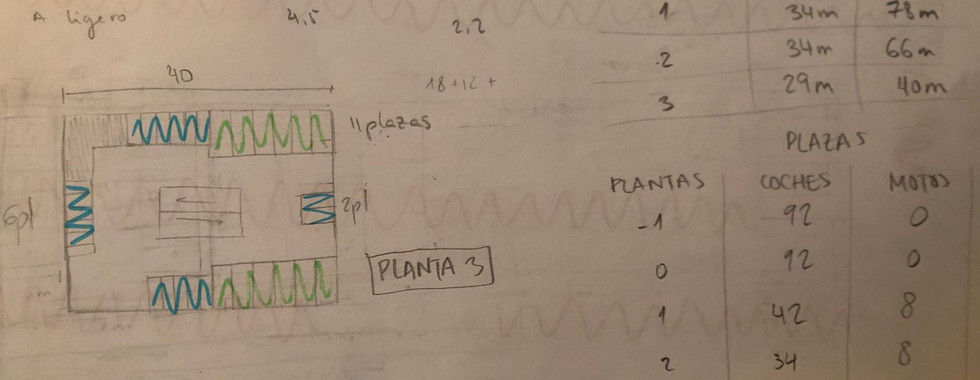 A ligero 4,5 2,2
40
18+12+
11 plazas
6pl
2pl
PLANTA 3
1 34m 78m
2 34m 66m
3 29m 40m
PLAZAS
PLANTAS COCHES MOTOS
-1 92 0
0 92 0
1 42 8
2 34 8